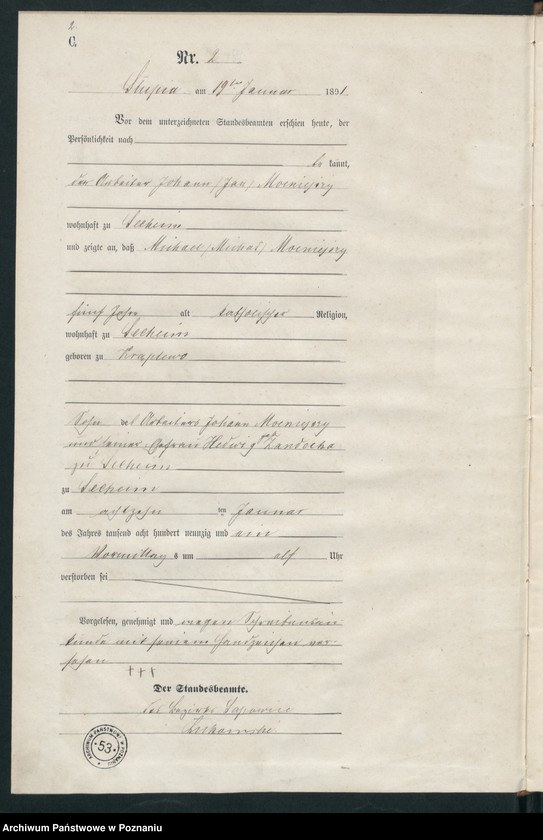 2
C.
Nr. 2
Słupia am 19ten Januar 1891
Vor dem unterzeichneten Standesbeamten erschien heute, der
Persönlichkeit nach
be kannt,
der Arbeiter Johann (Jan)
wohnhaft zu Seeheim
und zeigte an, daß Michael (Michał)
fünf Jahr alt katholischer Religion,
wohnhaft zu Seeheim
geboren zu
Sohn des Arbeiters Johann
und seiner Ehefrau
zu Seeheim
zu Seeheim
am achtzehn ten Januar
des Jahres tausend acht hundert neunzig und ein
Vormittag s um elf Uhr
verstorben sei
Vorgelesen, genehmigt und wegen Schreibunkunde
mit seinem Handzeichen versehen
+++
Der Standesbeamte.
des Bezirks
ARCHIWUM PAŃSTWOWE W POZNANIU
53
Archiwum Państwowe w Poznaniu